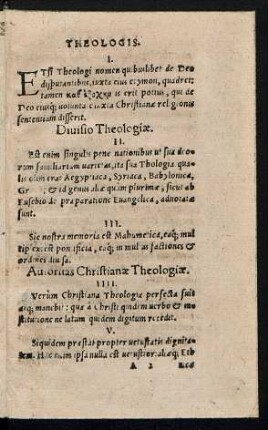 THEOLOGIS.
I.
ETSI Theologi nomen quibuslibet de Deo
disputantibus, iuxta eius etymon, quadret;
tamen κατ' ἐξοχὴν is erit potius, qui de
Deo eiusq; voluntate iuxta Christianae religionis
sententiam disserit.
Divisio Theologiæ.
II.
Est enim singulis pene nationibus ut sua deo-
rum familiarum varietas, ita sua Theologia: qua-
lis olim erat Aegyptiaca, Syriaca, Babylonica,
& id genus aliæ quam plurimæ, sicuti ab
Eusebio de præparatione Euangelica, adnotatæ
sunt.
III.
Sic nostra memoria est Mahumetica, eaq; mul
tiplex: est pontificia, eaq; in multas factiones &
ordines diuisa.
Autoritas Christianæ Theologiæ.
IIII.
Verùm Christiana Theologia perfecta fuit
atq; manebit: quæ à Christi quidem verbo & in-
stitutione ne latum quidem digitum recedit.
V.
Siquidem præstat propter vetustatis dignita-
tem. Hac enim ipsa nulla est vetustior: aliæq; Eth
A 2 nicæ